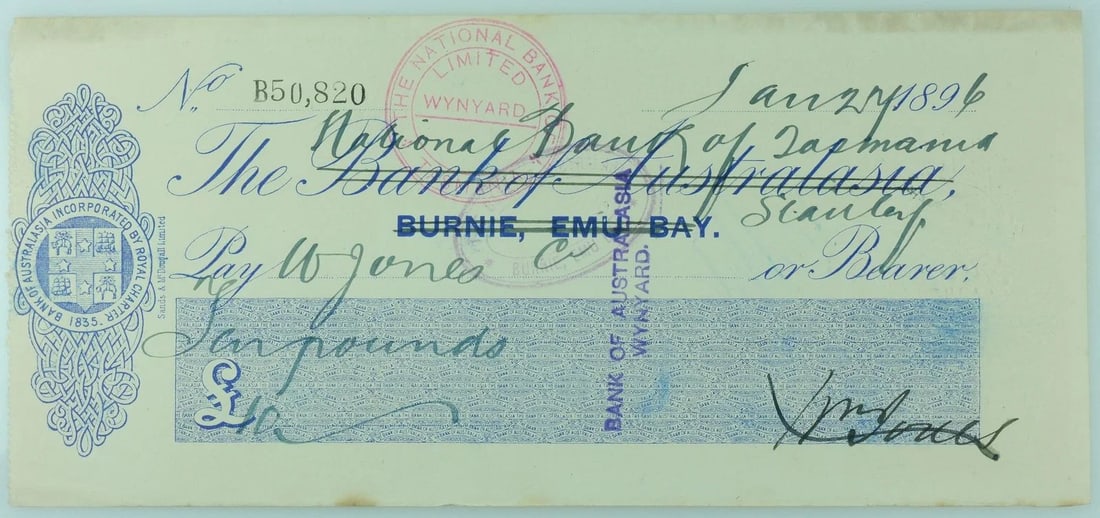 No B50,820
Jan 27 1896
THE NATIONAL BANK
LIMITED
WYNYARD
National Bank of Tasmania
The Bank of Australasia,
Stanley
BURNIE, EMU BAY.
Pay W Jones or Bearer.
Ten pounds
£10
Wm Jones
BANK OF AUSTRALASIA
WYNYARD.
BANK OF AUSTRALASIA INCORPORATED BY ROYAL CHARTER
1835.
Sands & McDougall Limited